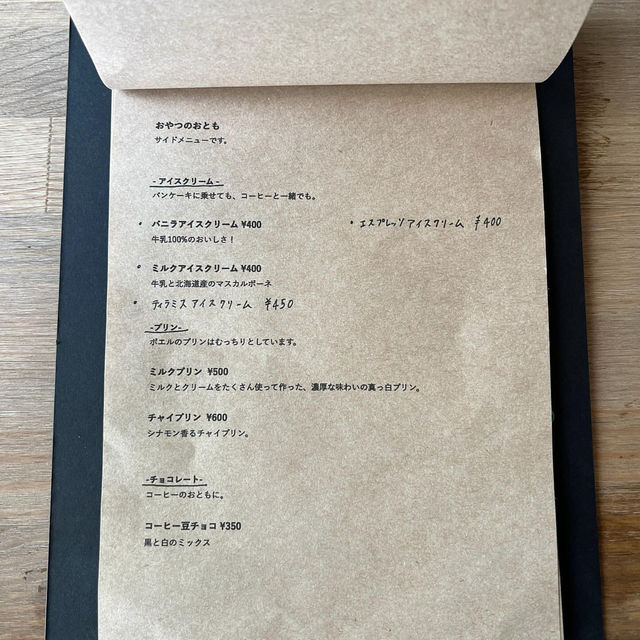 おやつのおとも
サイドメニューです。
- アイスクリーム -
パンケーキに乗せても、コーヒーと一緒でも。
• バニラアイスクリーム ¥400
牛乳100%のおいしさ！
• エスプレッソアイスクリーム ¥400
• ミルクアイスクリーム ¥400
牛乳と北海道産のマスカルポーネ
• ティラミスアイスクリーム ¥450
-プリン-
ポエルのプリンはむっちりとしています。
ミルクプリン ¥500
ミルクとクリームをたくさん使って作った、濃厚な味わいの真っ白プリン。
チャイプリン ¥600
シナモン香るチャイプリン。
-チョコレート-
コーヒーのおともに。
コーヒー豆チョコ ¥350
黒と白のミックス